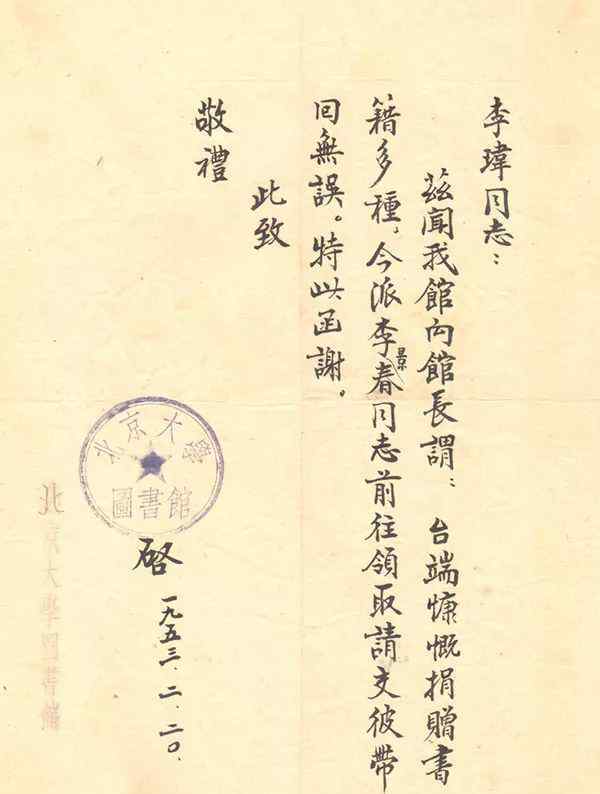 李瑋同志：
茲聞我館向館長謂：台端慷慨捐贈書
籍多種，今派李景春同志前往領取請交彼帶
回無誤。特此函謝。
此致
敬禮
北京大學
圖書館
啓
一九五三．二．二〇．
北京大學圖書館